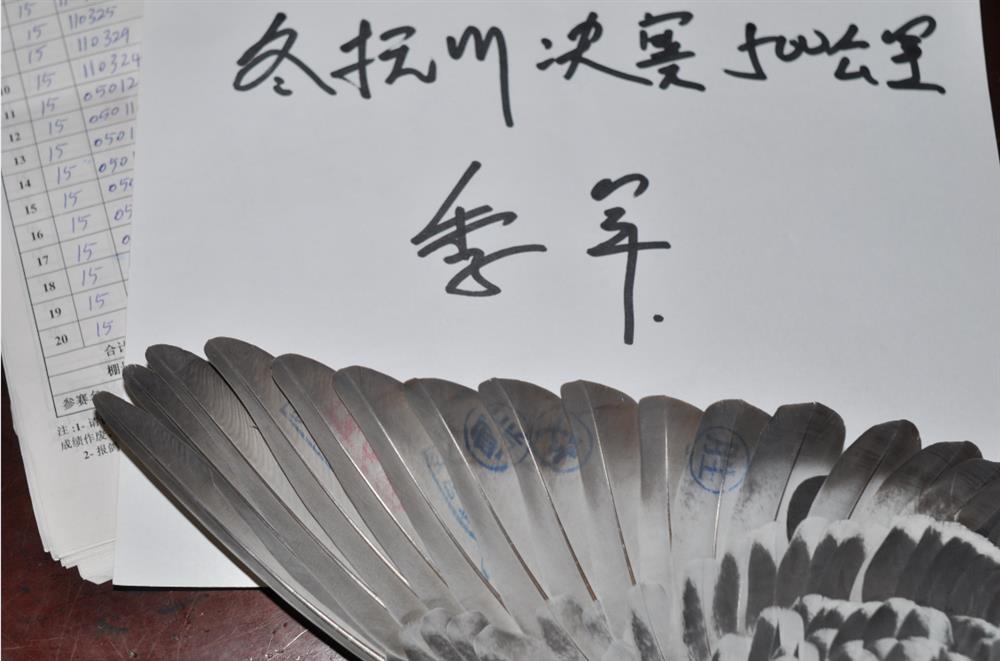 冬抚州决赛500公里
季军.
15
15 110325
15 110329
10 15 110324
11 15 05012
12 15 05011
13 15 0501
14 15 050
15 15 05
16 15 05
17 15 0
18 15
19 15
20 15
合计
棚
参赛
注:1- 请
成绩作废
2- 报鸽